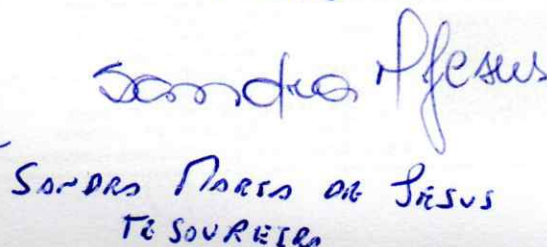 Sandra M Jesus
SANDRA MARIA DE JESUS
TESOUREIRA